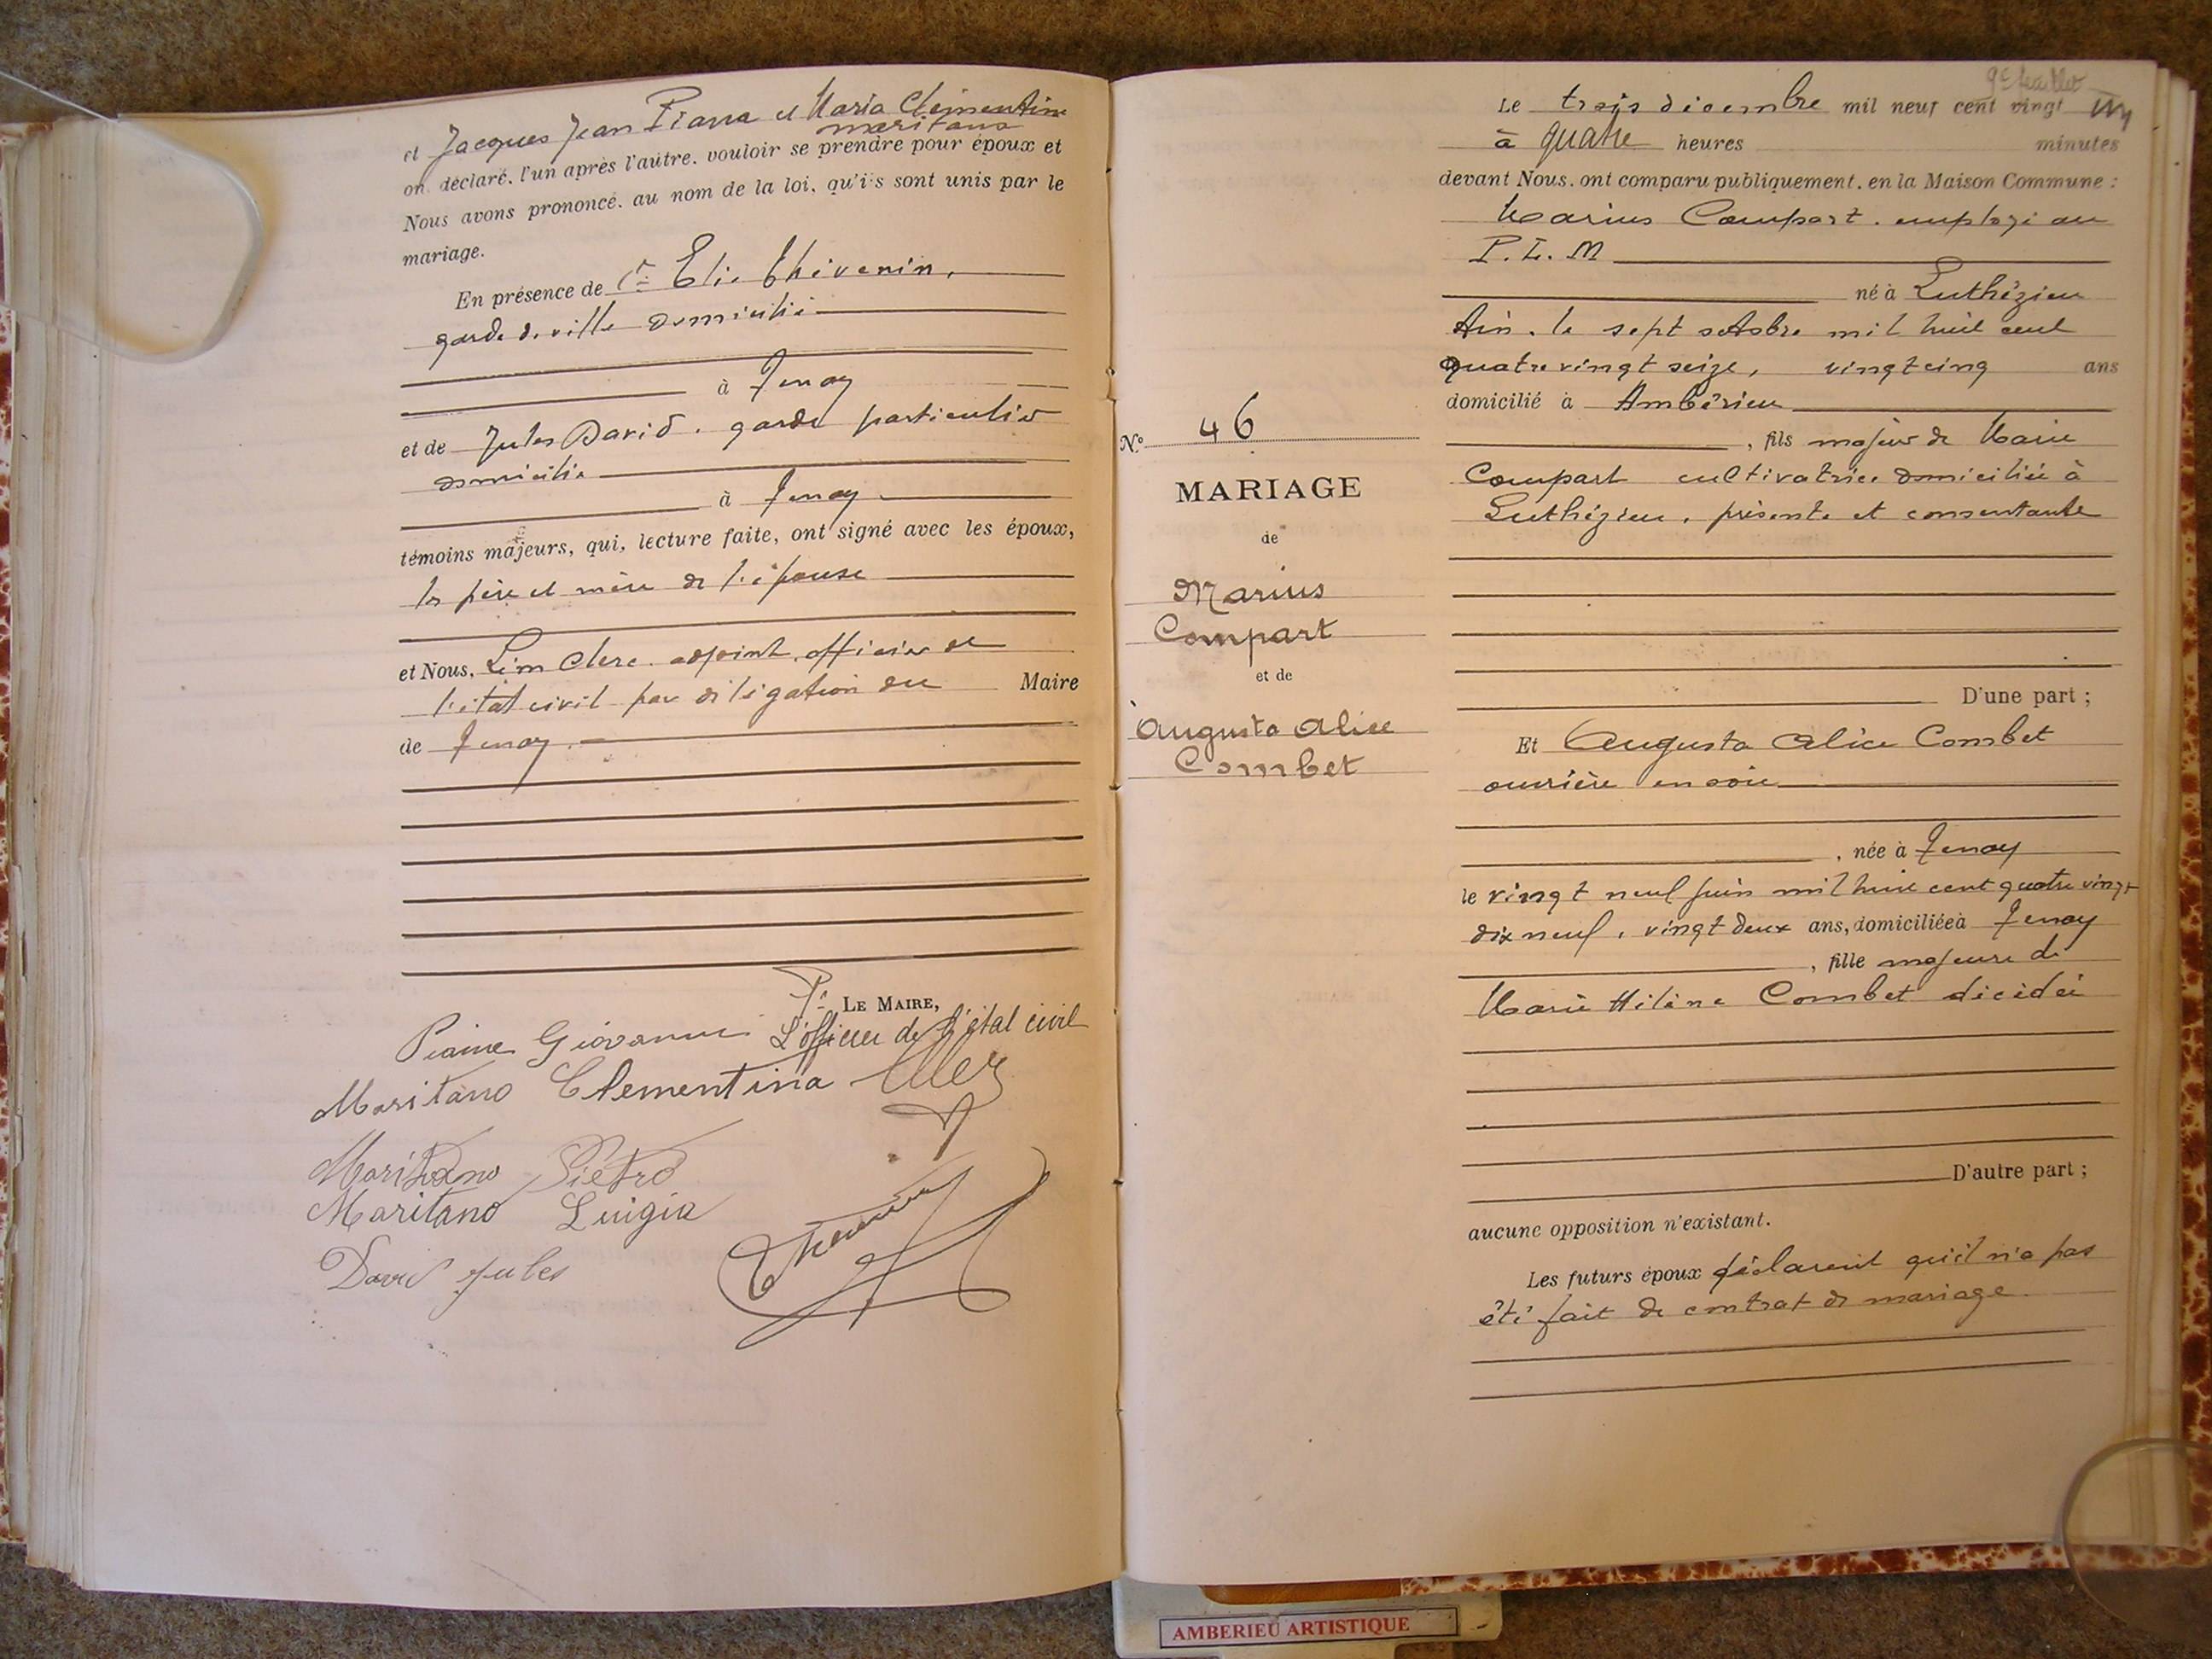 et Jacques Jean Piana et Maria Clémentine
maritano
ont déclaré, l'un après l'autre, vouloir se prendre pour époux et
Nous avons prononcé, au nom de la loi, qu'ils sont unis par le
mariage.
En présence de 1° Elie Thévenin,
garde de ville domicilié
à Tenay
et de Jules David, garde particulier
domicilié
à Tenay
témoins majeurs, qui, lecture faite, ont signé avec les époux,
les père et mère de l'épouse
et Nous, Léon Clerc adjoint, officier de
l'état civil par délégation du Maire
de Tenay.
Pr LE MAIRE,
L'officier de l'état civil
Giovanni
Maritano Clementina Clerc
Maritano Pietro
Maritano Luigia
Thévenin
David Jules
9e feuillet
Le trois décembre mil neuf cent vingt un
à quatre heures minutes
devant Nous, ont comparu publiquement, en la Maison Commune :
Marius Compart, employé au
P.L.M
né à Luthézieu
Ain, le sept octobre mil huit cent
quatre vingt seize, vingt cinq ans
domicilié à Ambérieu
, fils majeur de Marie
Compart cultivatrice domiciliée à
Luthézieu, présente et consentante
D'une part ;
Et Augusta Alice Combet
ouvrière en soie
, née à Tenay
le vingt neuf juin mil huit cent quatre vingt
dix neuf, vingt deux ans, domiciliée à Tenay
, fille majeure de
Marie Hélène Combet décédée
D'autre part ;
aucune opposition n'existant.
Les futurs époux déclarent qu'il n'a pas
été fait de contrat de mariage.
No 46
MARIAGE
de
Marius
Compart
et de
Augusta Alice
Combet
AMBERIEU ARTISTIQUE